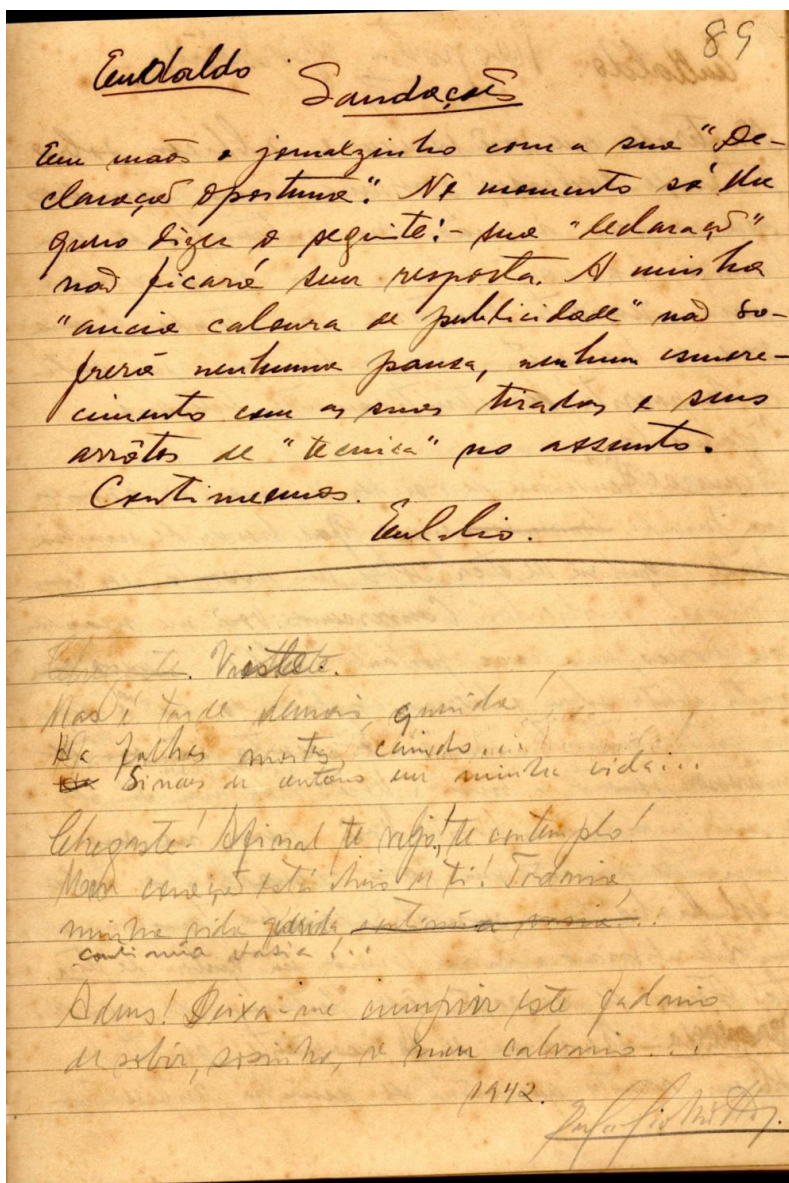 89
Eudaldo
Saudações
Em mãos o jornalzinho com a sua "De-
claração oportuna". No momento só lhe
quero dizer o seguinte:- sua "declaração"
não ficará sem resposta. A minha
"ancia caloura de publicidade" não so-
frerá nenhuma pausa, nenhum esmore-
cimento com as suas tiradas e seus
arrôtos de "tecnica" no assunto.
Continuemos.
Eulalio.
Chegaste. Vieste.
Mas é tarde demais, querida!
Ha folhas mortas, caindo...
Ha Sinaes de outono em minha vida...
Chegaste! Afinal te vejo, te contemplo!
Meu coração está cheio de ti! Todavia,
minha vida querida continúa vasia!...
continúa vasia!...
Adeus! Deixa-me cumprir este fadario
de subir, sosinho, o meu calvario...
1942.